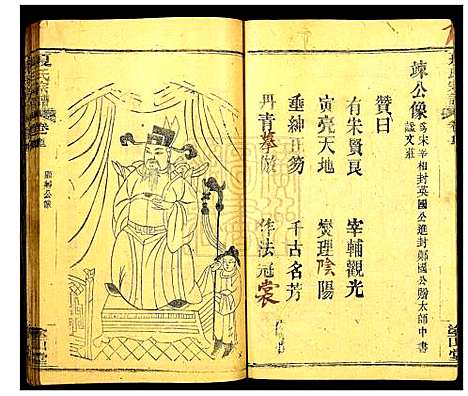 竦公像
為宋宰相封英國公進封鄭國公贈太師中書
諡文莊
贊曰
有宋賢良 宰輔觀光
寅亮天地 燮理陰陽
垂紳正笏 千古名芳
丹青摹 作法冠裳
夏氏宗譜